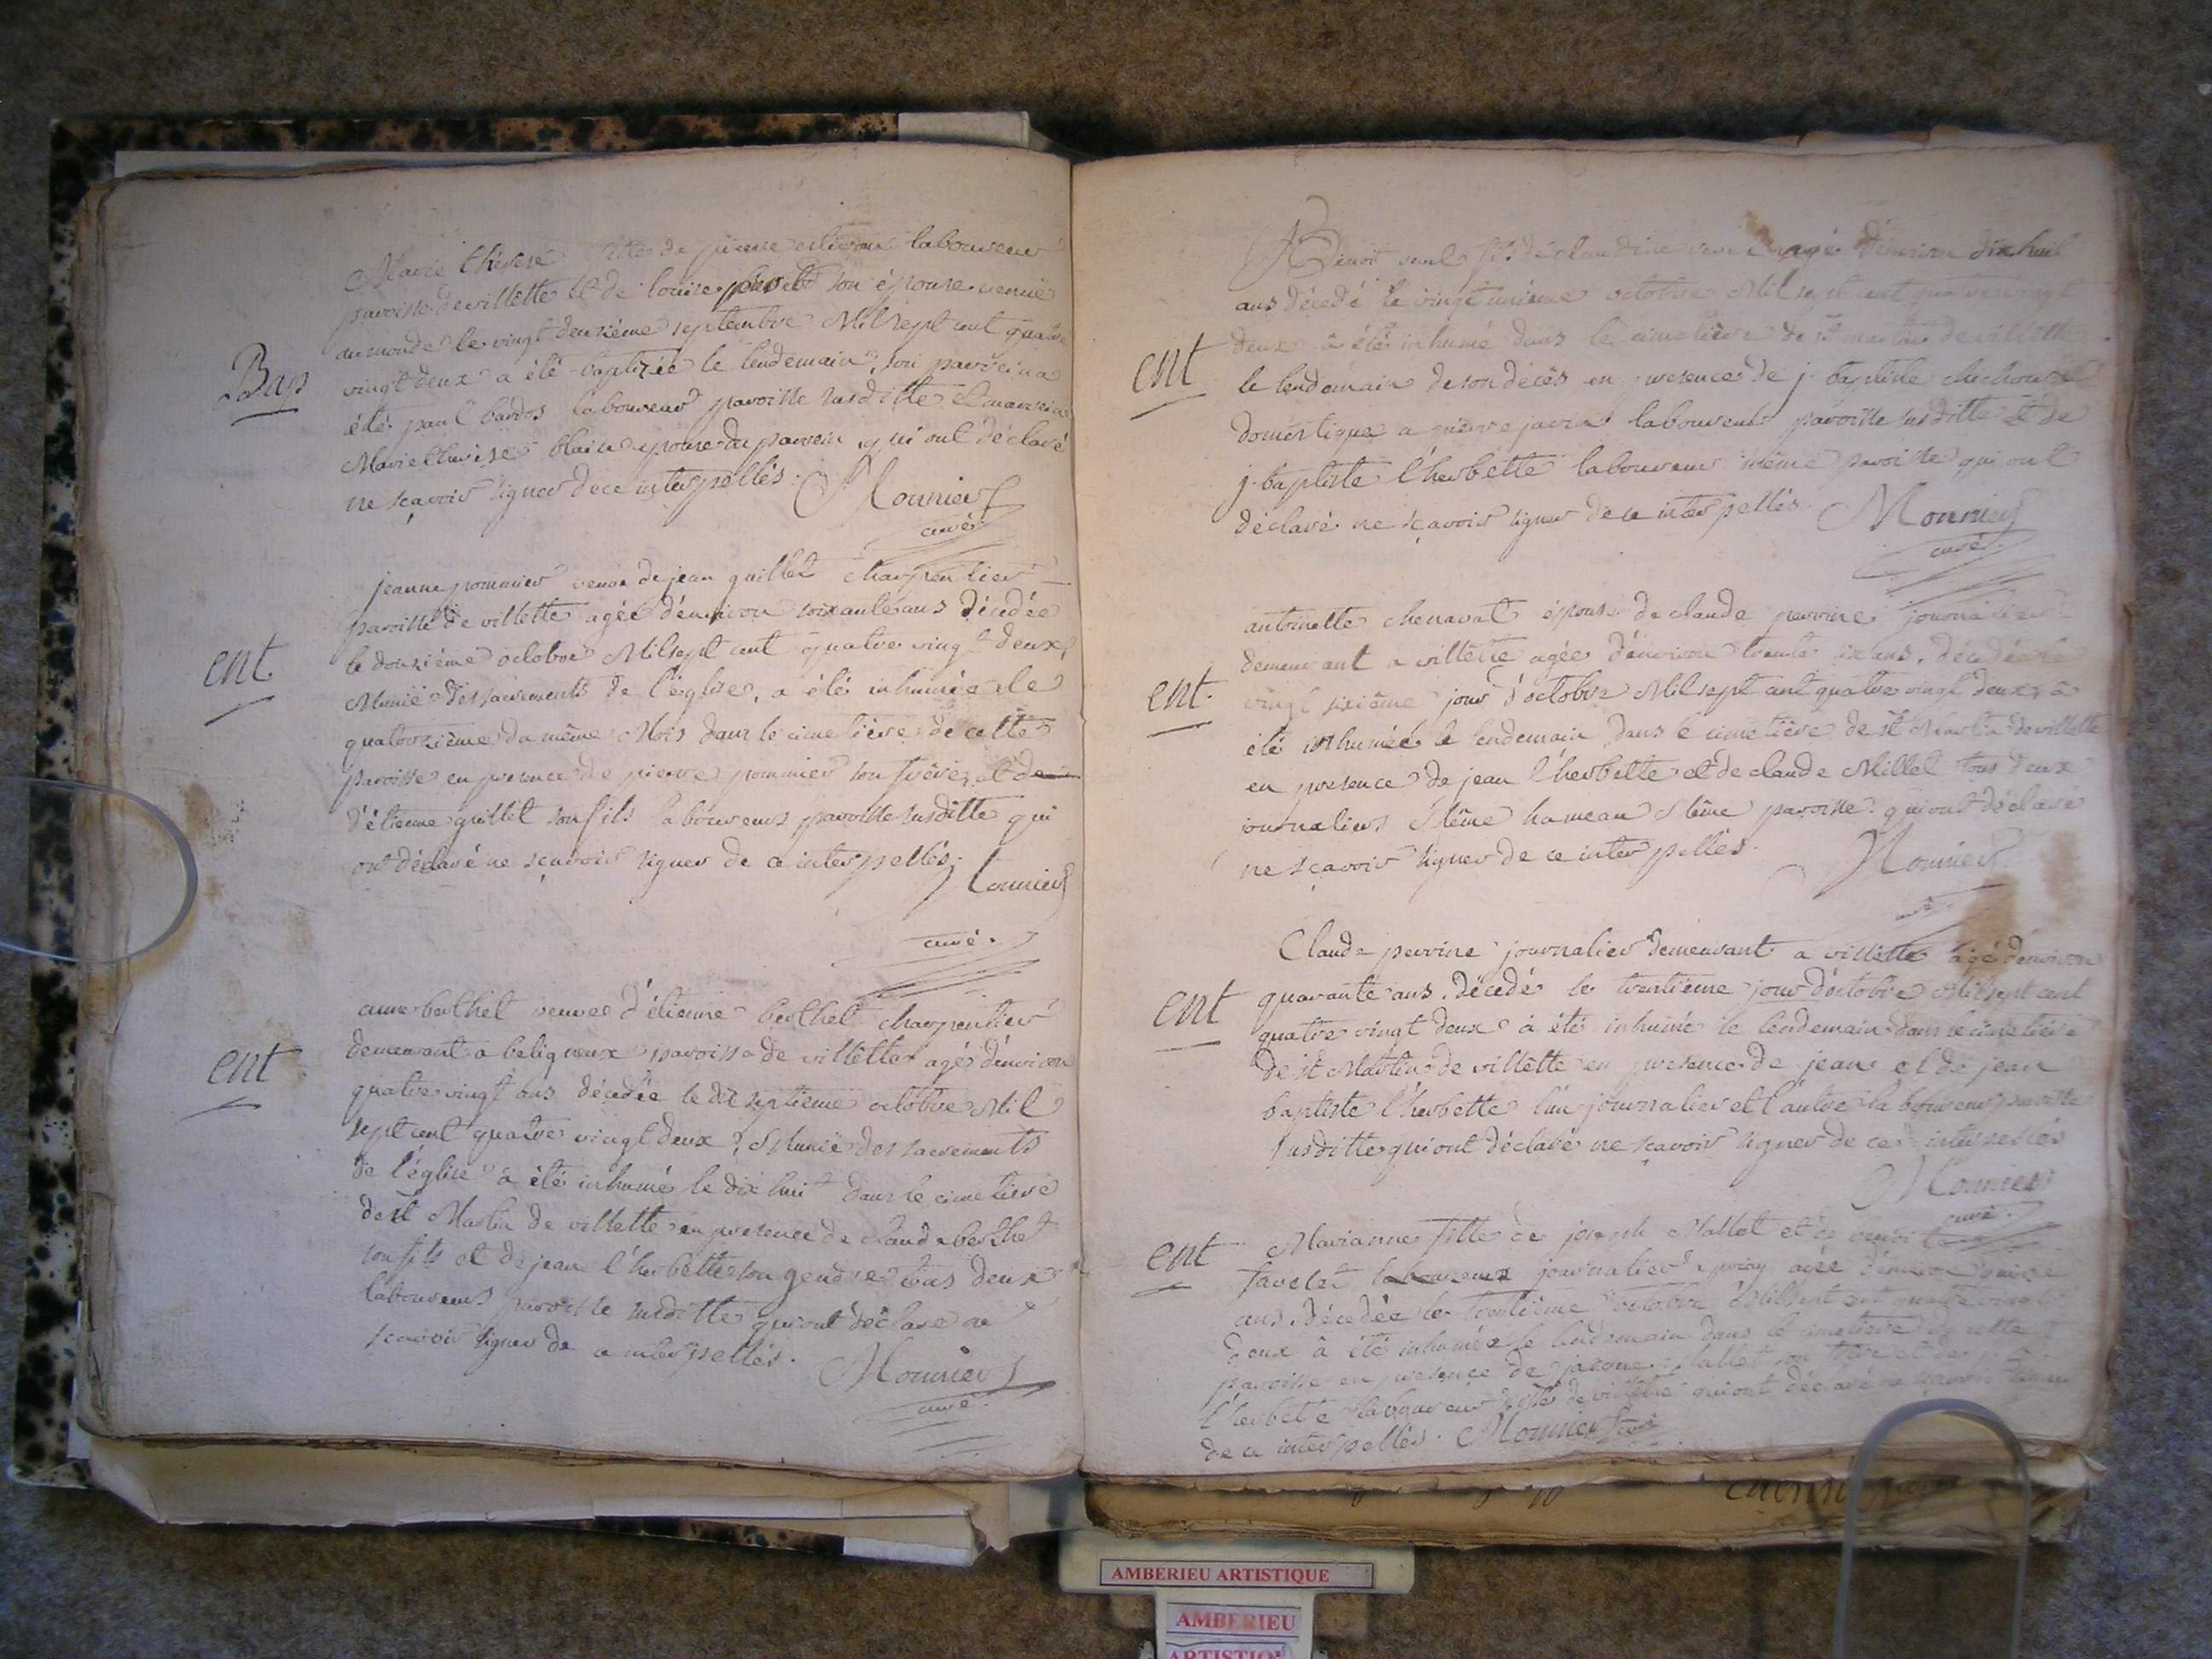 Marie thérese fille de pierre laboureur
paroisse de villette et de louise son épouse venue
au monde le vingt deuxiéme septembre Mil sept cent quatre
Bap
vingt deux a été baptizée le lendemain, son parrein a
été paul bardos laboureur paroisse susditte
Marie épouse du parrein qui ont déclaré
ne sçavoir signer de ce interpellés. Monnier
curé
jeanne pommier veuve de jean guillet charpentier
paroisse de villette agée d'environ soixante ans décedée
le douziéme octobre Mil sept cent quatre vingt deux,
ent
Munie des sacrements de l'église, a été inhumée le
quatorzième du même Mois dans le cimetière de cette
paroisse en presence de pierre pommier son frère, et de
d'étienne guillet son fils laboureurs paroisse susditte qui
ont déclaré ne sçavoir signer de ce interpellés. Monnier
curé.
anne berthet veuve d'étienne berthet charpentier
demeurant a beligneux paroisse de villette agé d'environ
ent
quatre vingt ans décedée le dix septieme octobre Mil
sept cent quatre vingt deux, Munie des sacrements
de l'église a été inhumé le dix huit dans le cimetiere
de st Martin de villette en presence de claude berthet
son fils et de jean l'herbette son gendre tous deux
laboureurs paroisse susditte qui ont déclaré ne
scavoir signer de ce interpellés. Monnier
curé.
Benoit fils de claudine agé d'environ dix huit
ans décedé le vingt unieme octobre Mil sept cent quatre vingt
deux a été inhumé dans le cimetière de st martin de villette
ent
le lendemain de son décès en presence de j. baptiste
domestique a pierre laboureur paroisse susditte et de
j. baptiste l'herbette laboureur même paroisse qui ont
déclaré ne sçavoir signer de ce interpellés. Monnier
curé.
antoinette chenavat épouse de claude perrine journalier
demeurant a villette agée d'environ trente six ans, décedée le
ent.
vingt sixième jour d'octobre Mil sept cent quatre vingt deux, a
été inhumée le lendemain dans le cimetière de st Martin de villette
en presence de jean l'herbette et de claude Millet tous deux
journaliers Même hameau Même paroisse qui ont déclaré
ne sçavoir signer de ce interpellés. Monnier
curé
Claude perrine journalier demeurant a villette agé d'environ
ent
quarante ans. Décedé le trentieme jour d'octobre Mil sept cent
quatre vingt deux a été inhumé le lendemain dans le cimetière
de st Martin de villette en presence de jean et de jean
baptiste l'herbette l'un journalier et l'autre laboureur paroisse
susditte qui ont déclaré ne sçavoir signer de ce interpellés
Monnier
curé.
ent
Marianne fille de joseph Mallet et de
favelet laboureur journalier a priay agée d'environ quinze
ans, décedée le trentième octobre Mil sept cent quatre vingt
deux a été inhumée le lendemain dans le cimetiere de cette
paroisse en presence de Mallet son frère et de
l'herbette laboureur de villette qui ont déclaré ne sçavoir signer
de ce interpellés. Monnier curé
AMBERIEU ARTISTIQUE
AMBERIEU
ARTISTIQUE